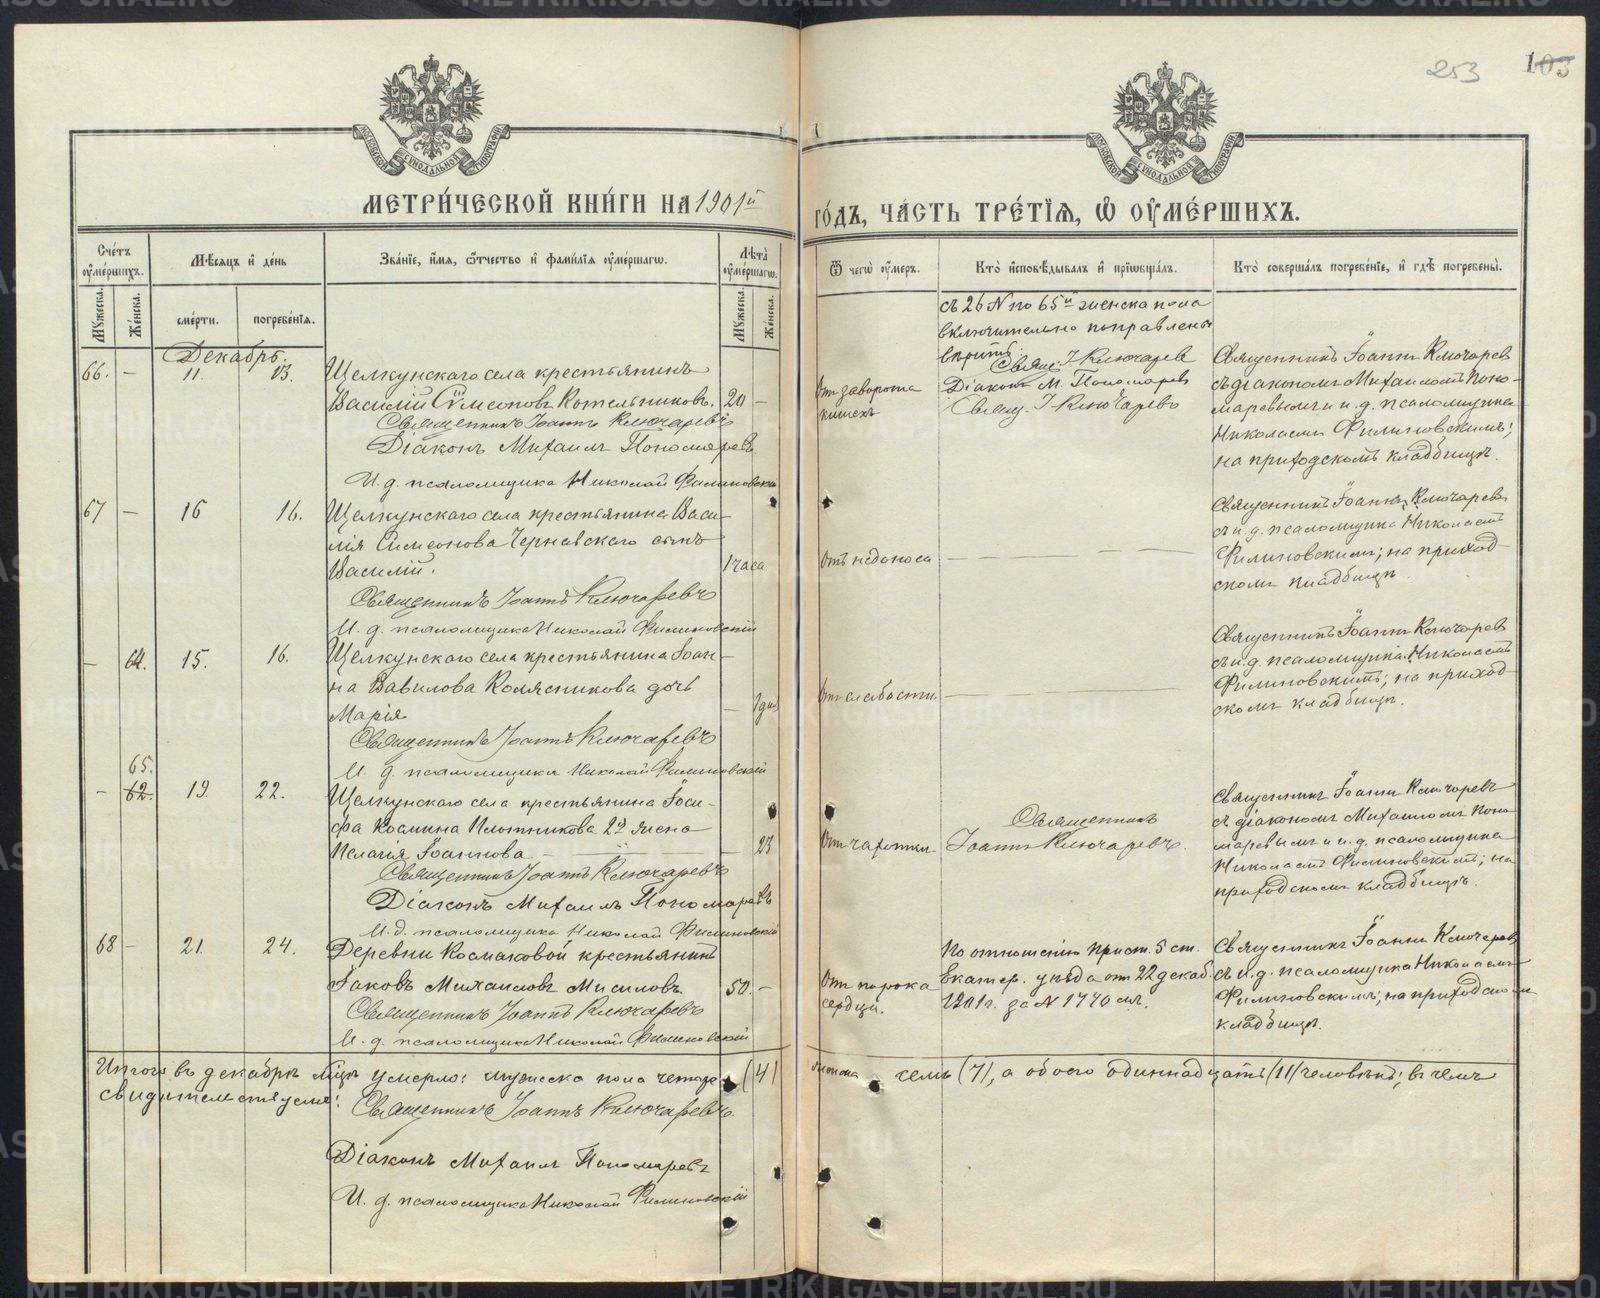 253 103
МОСКОВСКОЙ СУНОДАЛЬНОЙ ТИПОГРАФИИ
МЕТРИ́ЧЕСКОЙ КНИ́ГИ НА 1901й
ГО́ДЪ, ЧА́СТЬ ТРЕ́ТІЯ, Ѡ ОУМЕ́РШИХЪ.
Счетъ оумершихъ.
Мужеска.
Женска.
Мѣсяцъ и день
смерти.
погребенія.
Званіе, имя, отчество и фамилія оумершагѡ.
Лѣта оумершагѡ.
Мужеска.
Женска.
Ѿ чегѡ оумеръ.
Кто исповѣдывалъ и пріѡбщалъ.
Кто совершалъ погребеніе, и гдѣ погребены.
съ 26 N по 65й женска пола
включительно поправлено
Свящ. І Ключарев
Діаконъ М. Пономарев
Свящ. І Ключаревъ
Декабрь.
66. — 11. 13.
Щелкунскаго села крестьянинъ
Василій Сѵмеоновъ Котельниковъ. 20 —
Священникъ Іоаннъ Ключаревъ
Діаконъ Михаилъ Пономаревъ
И. д. псаломщика Николай Филиновскій
Отъ заворота
кишекъ
Священникъ Іоаннъ Ключарев
съ діакономъ Михаиломъ Поно-
маревымъ и и. д. псаломщика
Николаемъ Филиновскимъ;
на приходскомъ кладбищѣ.
67 — 16 16.
Щелкунскаго села крестьянина Васи-
лія Симеонова Чернавскаго сынъ
Василій. 1 часа
Священникъ Іоаннъ Ключаревъ
И. д. псаломщика Николай Филиновскій
Отъ недоноса — — —
Священникъ Іоаннъ Ключаревъ
съ и. д. псаломщика Николаемъ
Филиновскимъ; на приход-
скомъ кладбищѣ.
— 64. 15. 16.
Щелкунскаго села крестьянина Іоан-
на Вавилова Колясникова дочь
Марія — 1 дня
Священникъ Іоаннъ Ключаревъ
И. д. псаломщика Николай Филиновскій
Отъ слабости. —
Священникъ Іоаннъ Ключарев
съ и. д. псаломщика Николаемъ
Филиновскимъ; на приход-
скомъ кладбищѣ.
65.
— 62. 19. 22.
Щелкунскаго села крестьянина Іоси-
фа Космина Плотникова 2я жена
Пелагія Іоаннова — — 23
Священникъ Іоаннъ Ключаревъ
Діаконъ Михаилъ Пономаревъ
И. д. псаломщика Николай Филиновскій
Отъ чахотки
Священникъ
Іоаннъ Ключаревъ.
Священникъ Іоаннъ Ключаревъ
съ діакономъ Михаиломъ Поно-
маревымъ и и. д. псаломщика
Николаемъ Филиновскимъ; на
приходскомъ кладбищѣ.
68 — 21. 24.
Деревни Космаковой крестьянинъ
Іаковъ Михаиловъ Мисиловъ 50. —
Священникъ Іоаннъ Ключаревъ
И. д. псаломщика Николай Филиновскій
Отъ порока
сердца.
По отношенію прист. 5 ст.
Екатер. уѣзда от 22 декаб.
1901 г. за N 1770
Священникъ Іоаннъ Ключарев
съ и. д. псаломщика Николаемъ
Филиновскимъ; на приходском
кладбищѣ.
Итого въ декабрѣ мѣсяцѣ умерло: мужеска пола четыре (4) женска семь (7), а обоего одиннадцать (11) человѣкъ; въ чемъ
свидѣтельствуемъ:
Священникъ Іоаннъ Ключаревъ
Діаконъ Михаилъ Пономаревъ
И. д. псаломщика Николай Филиновскій
METRIKI.GASO-URAL.RU